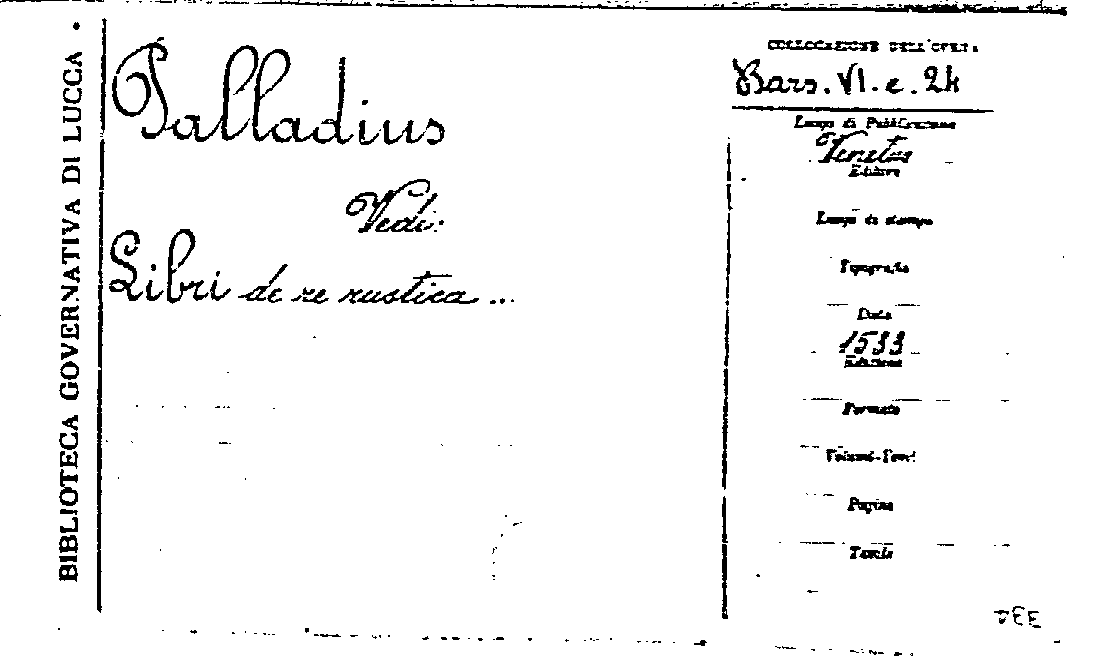 BIBLIOTECA GOVERNATIVA DI LUCCA
Palladius
Vedi:
Libri de re rustica ...
COLLOCAZIONE DELL'OPERA
Bars. VI. e. 24
Luogo di Pubblicazione
Venetus
Editore
Luogo di stampa
Tipografia
Data
1533
Edizione
Formato
Volumi-Tomi
Pagine
Tavole